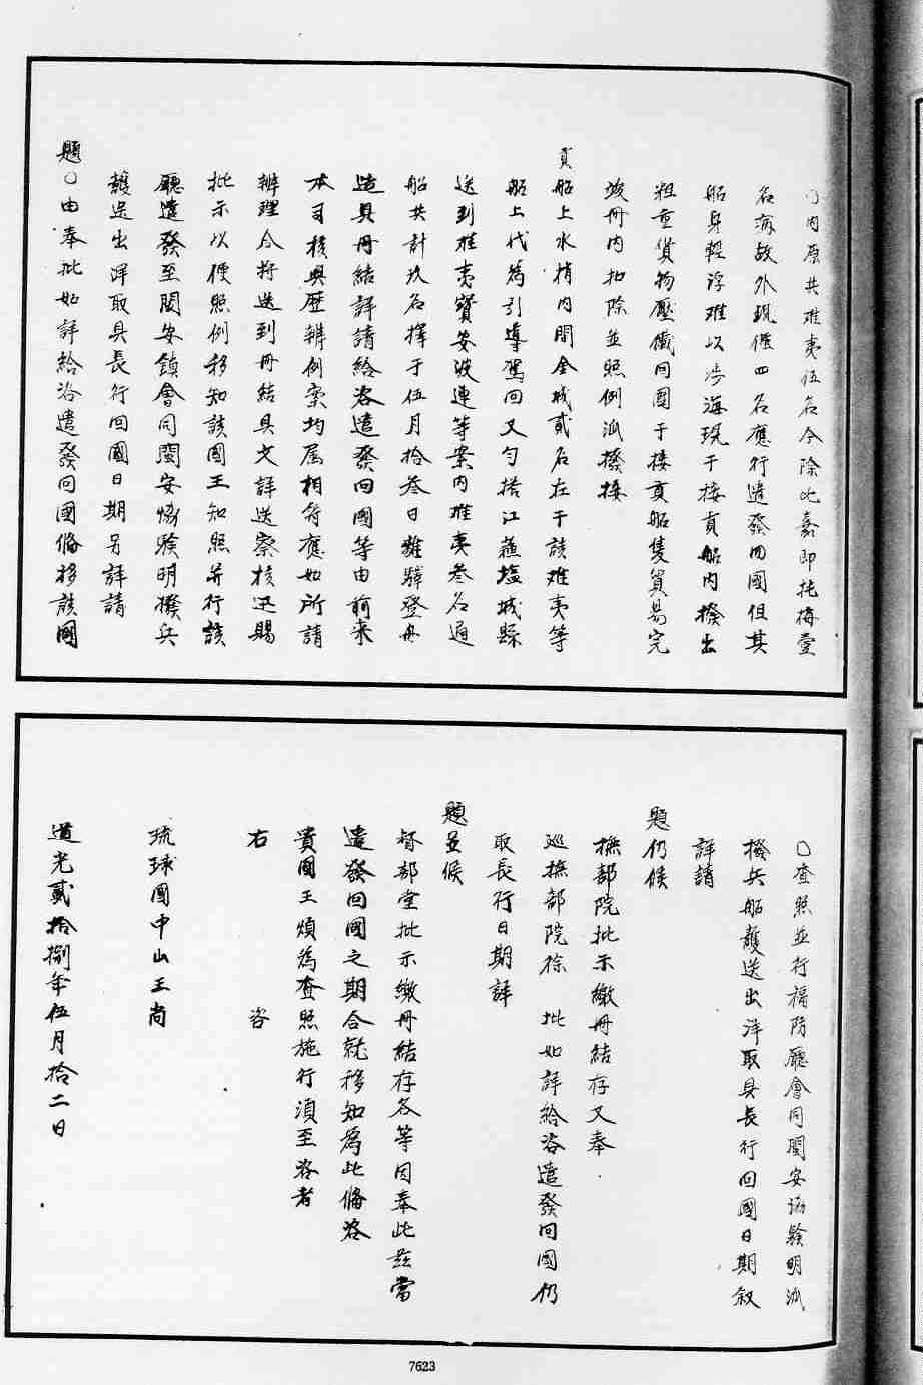 ○內原共难夷伍名今除此嘉即托梅壹
名病故外現僅四名應行遣發回國但其
船身輕浮难以涉海現于接貢船内撥出
粗重貨物壓儎同國于接貢船隻貿易完
竣冊內扣除並照例派撥接
貢船上水梢内間金城貳名在于該难夷等
船上代為引導駕回又勻搭江蘇塩城縣
送到难夷寳安波連等案内难夷叁名通
船共計玖名擇于伍月拾叁日離驛登舟
造具冊結詳請給咨遣發回國等由前来
本司核與歷辦例案均属相符應如所請
辦理合将送到冊結具文詳送察核迅賜
批示以便照例移知該國王知照并行該
廳遣發至閩安鎮會同閩安協驗明撥兵
護送出洋取具長行回國日期另詳請
題○由奉批如詳給咨遣發回國俻移該國
○查照並行福防廳會同閩安協驗明派
撥兵船護送出洋取具長行回國日期叙
詳請
題仍候
撫部院批示繳冊結存又奉
巡撫部院徐 批如詳給咨遣發回國仍
取長行日期詳
題並候
督部堂批示繳冊結存各等因奉此兹當
遣發回國之期合就移知為此俻咨
貴國王煩為查照施行湏至咨者
右 咨
琉球國中山王尚
道光貳拾捌年伍月拾二日
7623